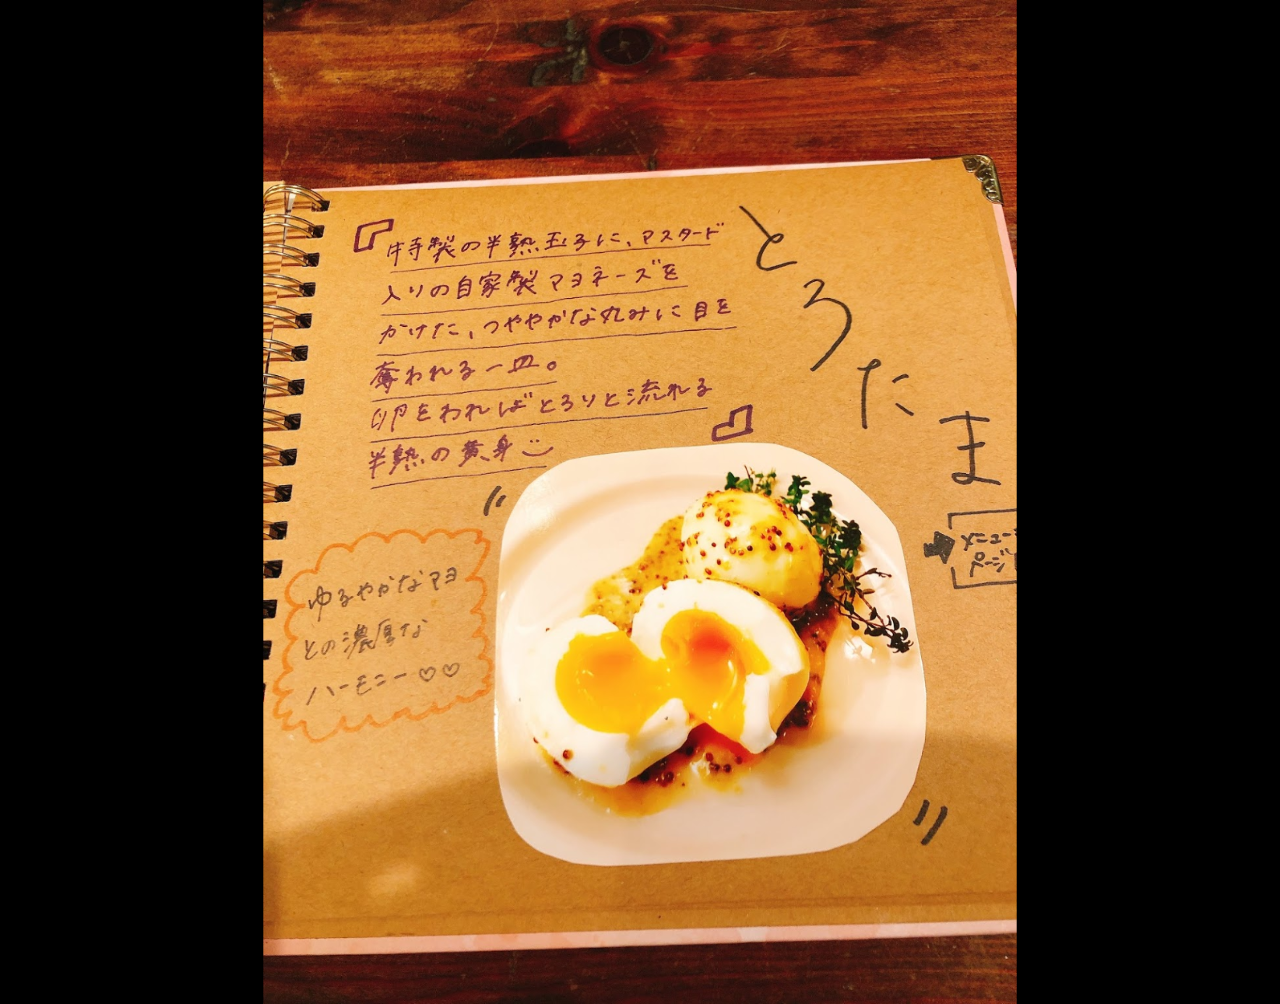 『特製の半熟玉子に、マスタード
入りの自家製マヨネーズを
かけた、つややかな丸みに目を
奪われる一皿。
卵をわればとろりと流れる
半熟の黄身』
とろたま
メニュー
ページ
ゆるやかなマヨ
との濃厚な
ハーモニー♡♡